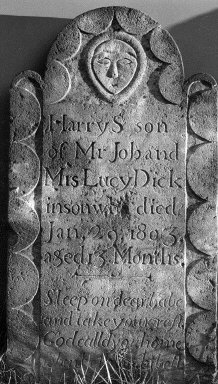 Harry S son
of Mr Job and
Mrs Lucy Dick
inson who died
Jan. 29, 1803,
aged 15 Months.
Sleep on dear babe
and take your rest
God called you home